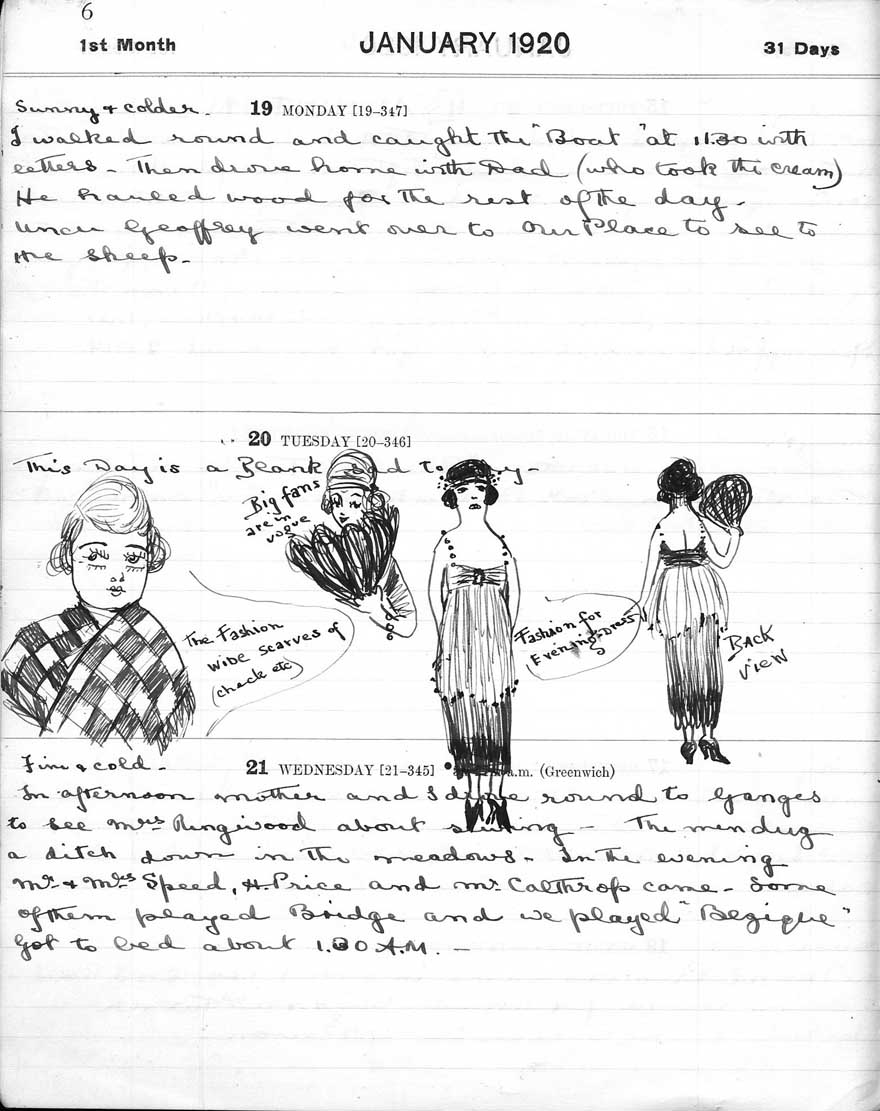 6
1st Month JANUARY 1920 31 Days
Sunny & colder. 19 MONDAY [19–347]
I walked round and caught the "Boat" at 11.30 with
letters – Then drove home with Dad (who took the cream)
He hauled wood for the rest of the day –
Uncle Geoffrey went over to Our Place to see to
the sheep –
20 TUESDAY [20–346]
This Day is a Blank sad to –
Big fans
are in
vogue
The Fashion
wide scarves of
(check etc)
Fashion for
Evening Dress
BACK
VIEW
Fine & cold – 21 WEDNESDAY [21–345] a.m. (Greenwich)
In afternoon mother and I drove round to Ganges
to see Mrs Ringwood about – The men dug
a ditch down in the meadows – In the evening
Mr & Mrs Speed, H. Price and Mr Calthrop came – Some
of them played Bridge and we played "Bezique"
Got to bed about 1.30 A.M. –